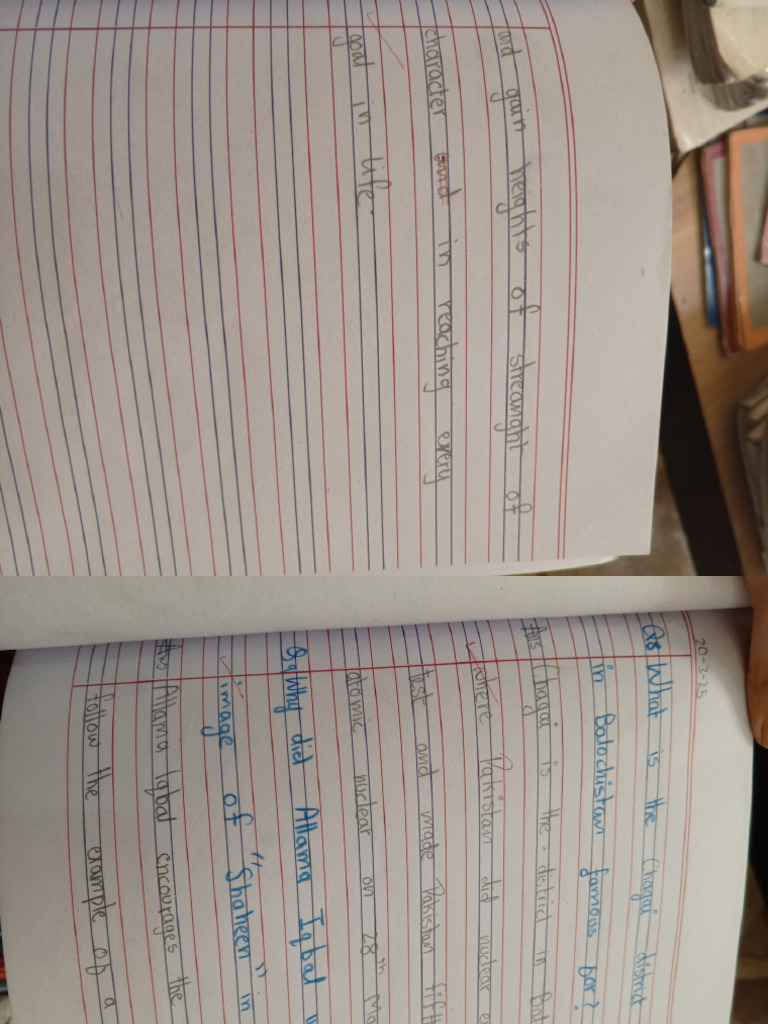 and gain heights of streanght of
character and in reaching every
goal in life.
20-3-25
Q8 What is the Chagai district
in Balochistan famous for?
Ans Chagai is the district in
where Pakistan did nuclear
test and made Pakistan
atomic nuclear on 28th
Q9 Why did Allama Iqbal
image of "Shaheen" in
Ans Allama Iqbal encourages the
follow the example of a